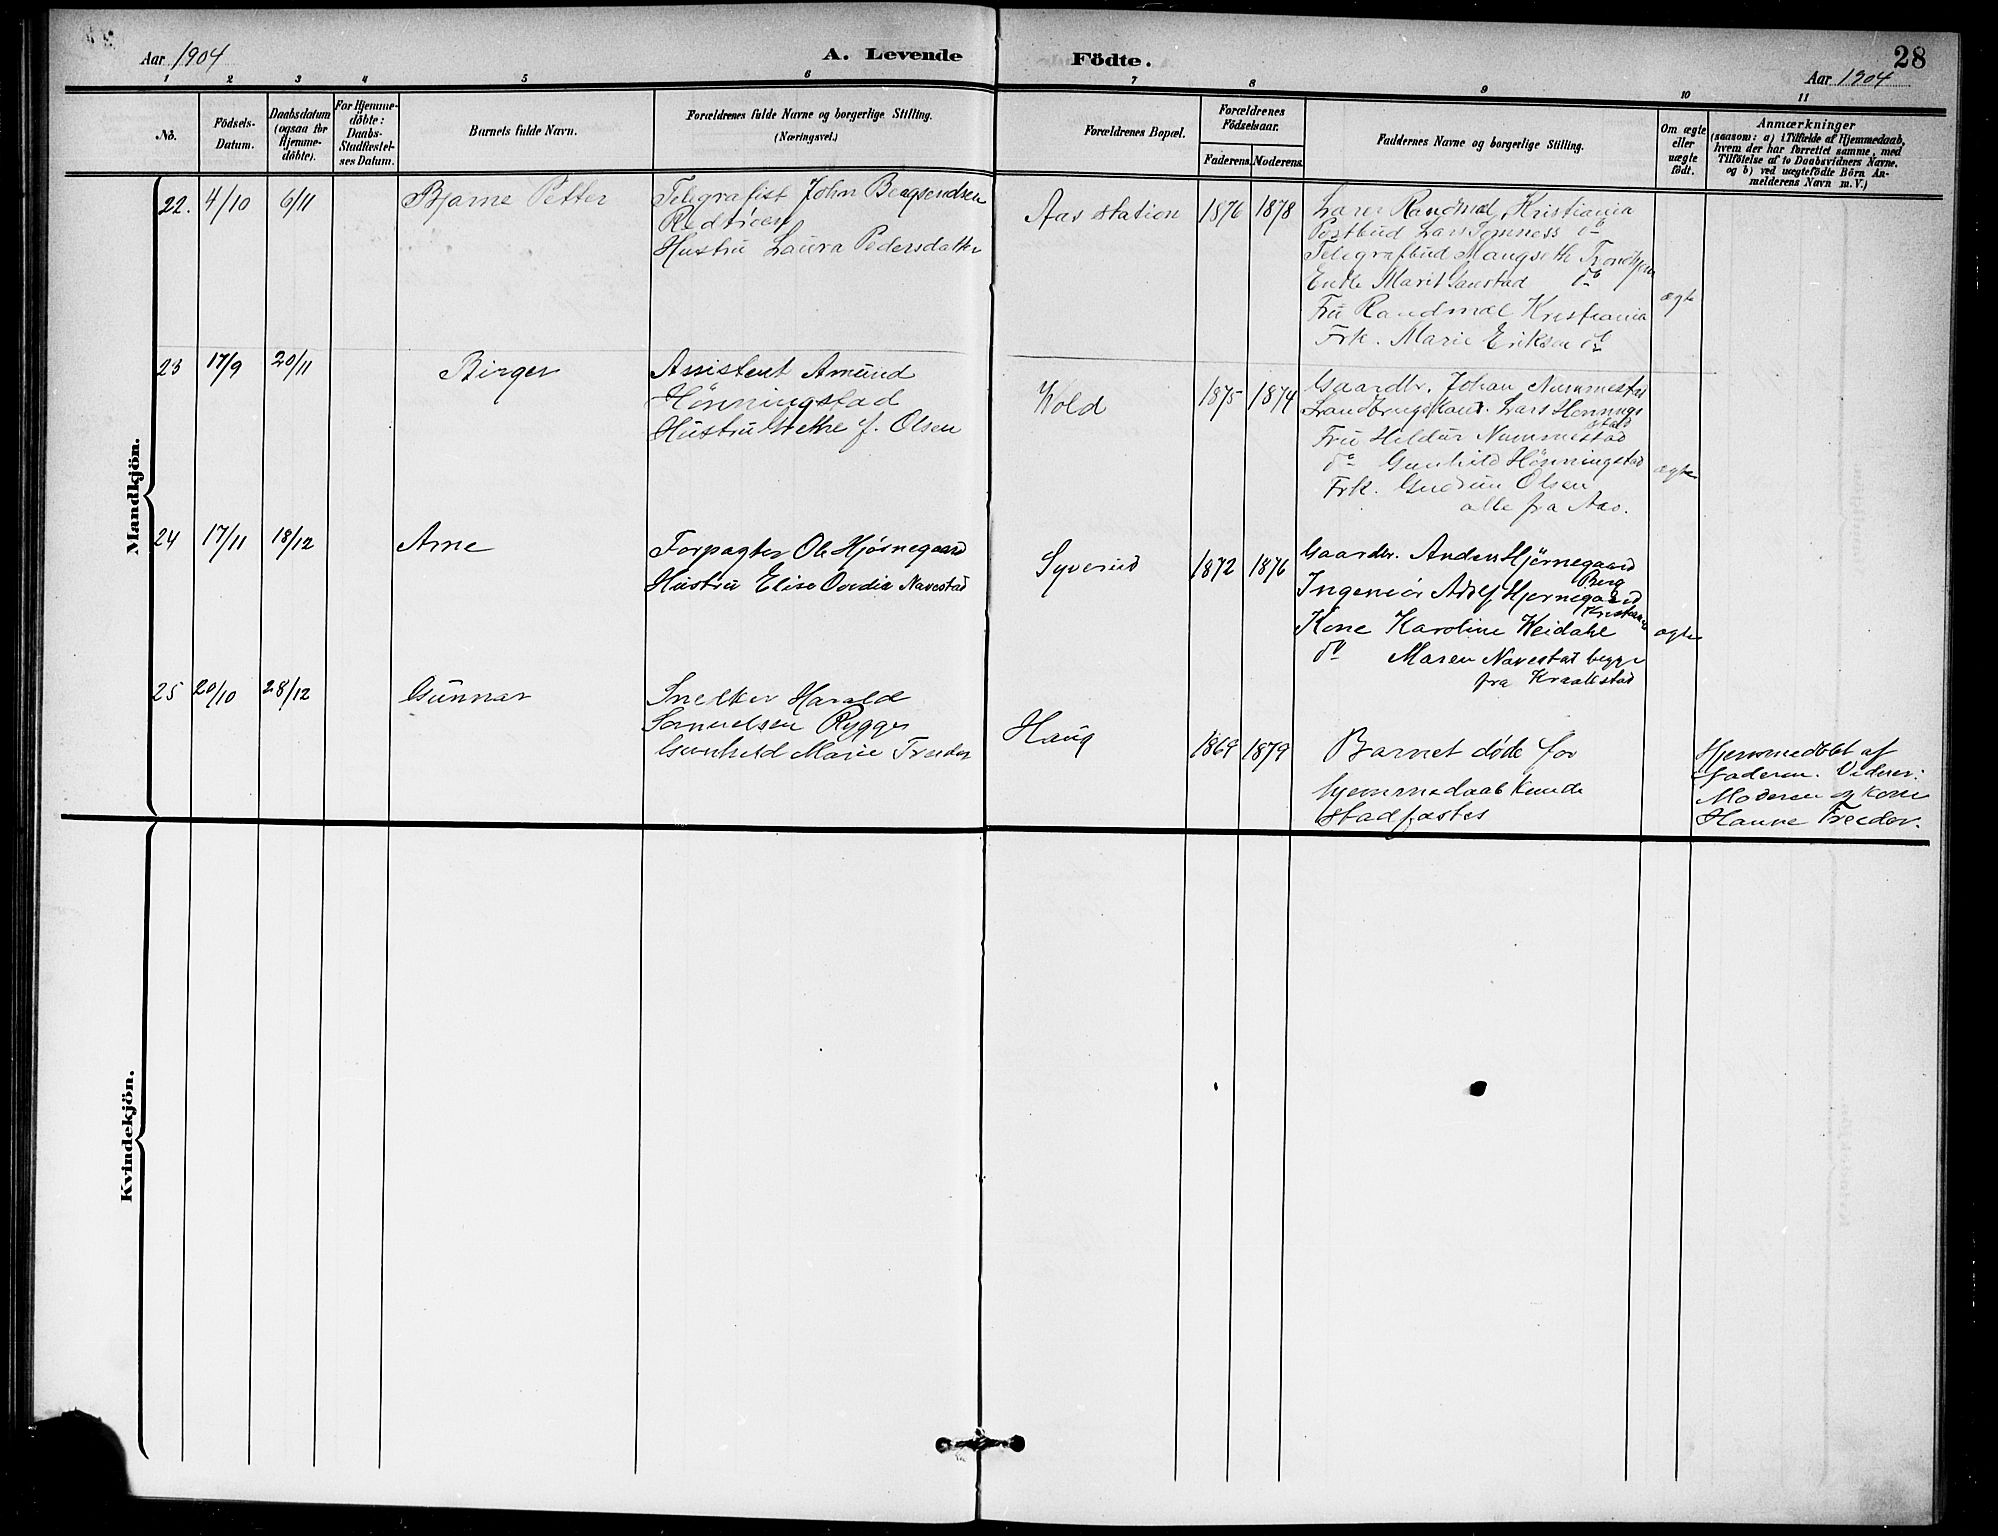 Aar 1904
A. Levende
Födte.
28
Aar 1904
1 2 3 4 5 6 7 8 9 10 11
No.
Födsels-
Datum.
Daabsdatum
(ogsaa for
Hjemme-
döbte).
For Hjemme-
döbte:
Daabs-
Stadfæstel-
ses Datum.
Barnets fulde Navn.
Forældrenes fulde Navne og borgerlige Stilling.
(Næringsvei.)
Forældrenes Bopæl.
Forældrenes
Födselsaar.
Faderens. Moderens.
Faddernes Navne og borgerlige Stilling.
Om ægte
eller
uægte
födt.
Anmærkninger
(saasom: a) i Tilfælde af Hjemmedaab,
hvem der har forrettet samme, med
Tilföielse af to Daabsvidners Navne.
og b) ved uægtefödte Börn An-
melderens Navn m. V.)
Mandkjön.
22. 4/10 6/11
Bjarne Petter
Telegrafist John Bengsendsen
Hustru Laura Pedersdatter
Aas station
1876 1878
Randmæl, Kristiania
Postbud Lars do
Telegrafbud Mangseth Trondhjem
Enke Marit do
Fru Randmæl Kristiania
Frk. Marie Eriksen do
ægte
23 17/9 20/11
Birger
Assistent Amund
Hönningstad
Hustru Grethe f. Olsen
Wold
1875 1874
Gaardbr. Johan Nummestad
Lars Hönnings
stad
Fru Hildur Nummestad
do Gunhild Hönningstad
Frk. Gudrun Olsen
alle fra Aas.
ægte
24 17/11 18/12
Arne
Forpagter Ole Hjørnegaard
Hustru Elise Ovidia Navestad
Syverud
1872 1876
Gaardbr. Anders Hjørnegaard
Berg
Ingeniør Adolf Hjørnegaard
Kristiania
Kone Karoline Weidahl
do Maren Navestad begge
fra Kraakstad
ægte
25 20/10 28/12
Gunnar
Snekker Harald
Samuelsen Rygge
Gunhild Marie Treider
Haug
1869 1879
Barnet døde før
hjemmedaab kunde
stadfæstes
Hjemmedøbt af
faderen. Vidner:
Moderen og kone
Hanne Treider.
Kvindekjön.